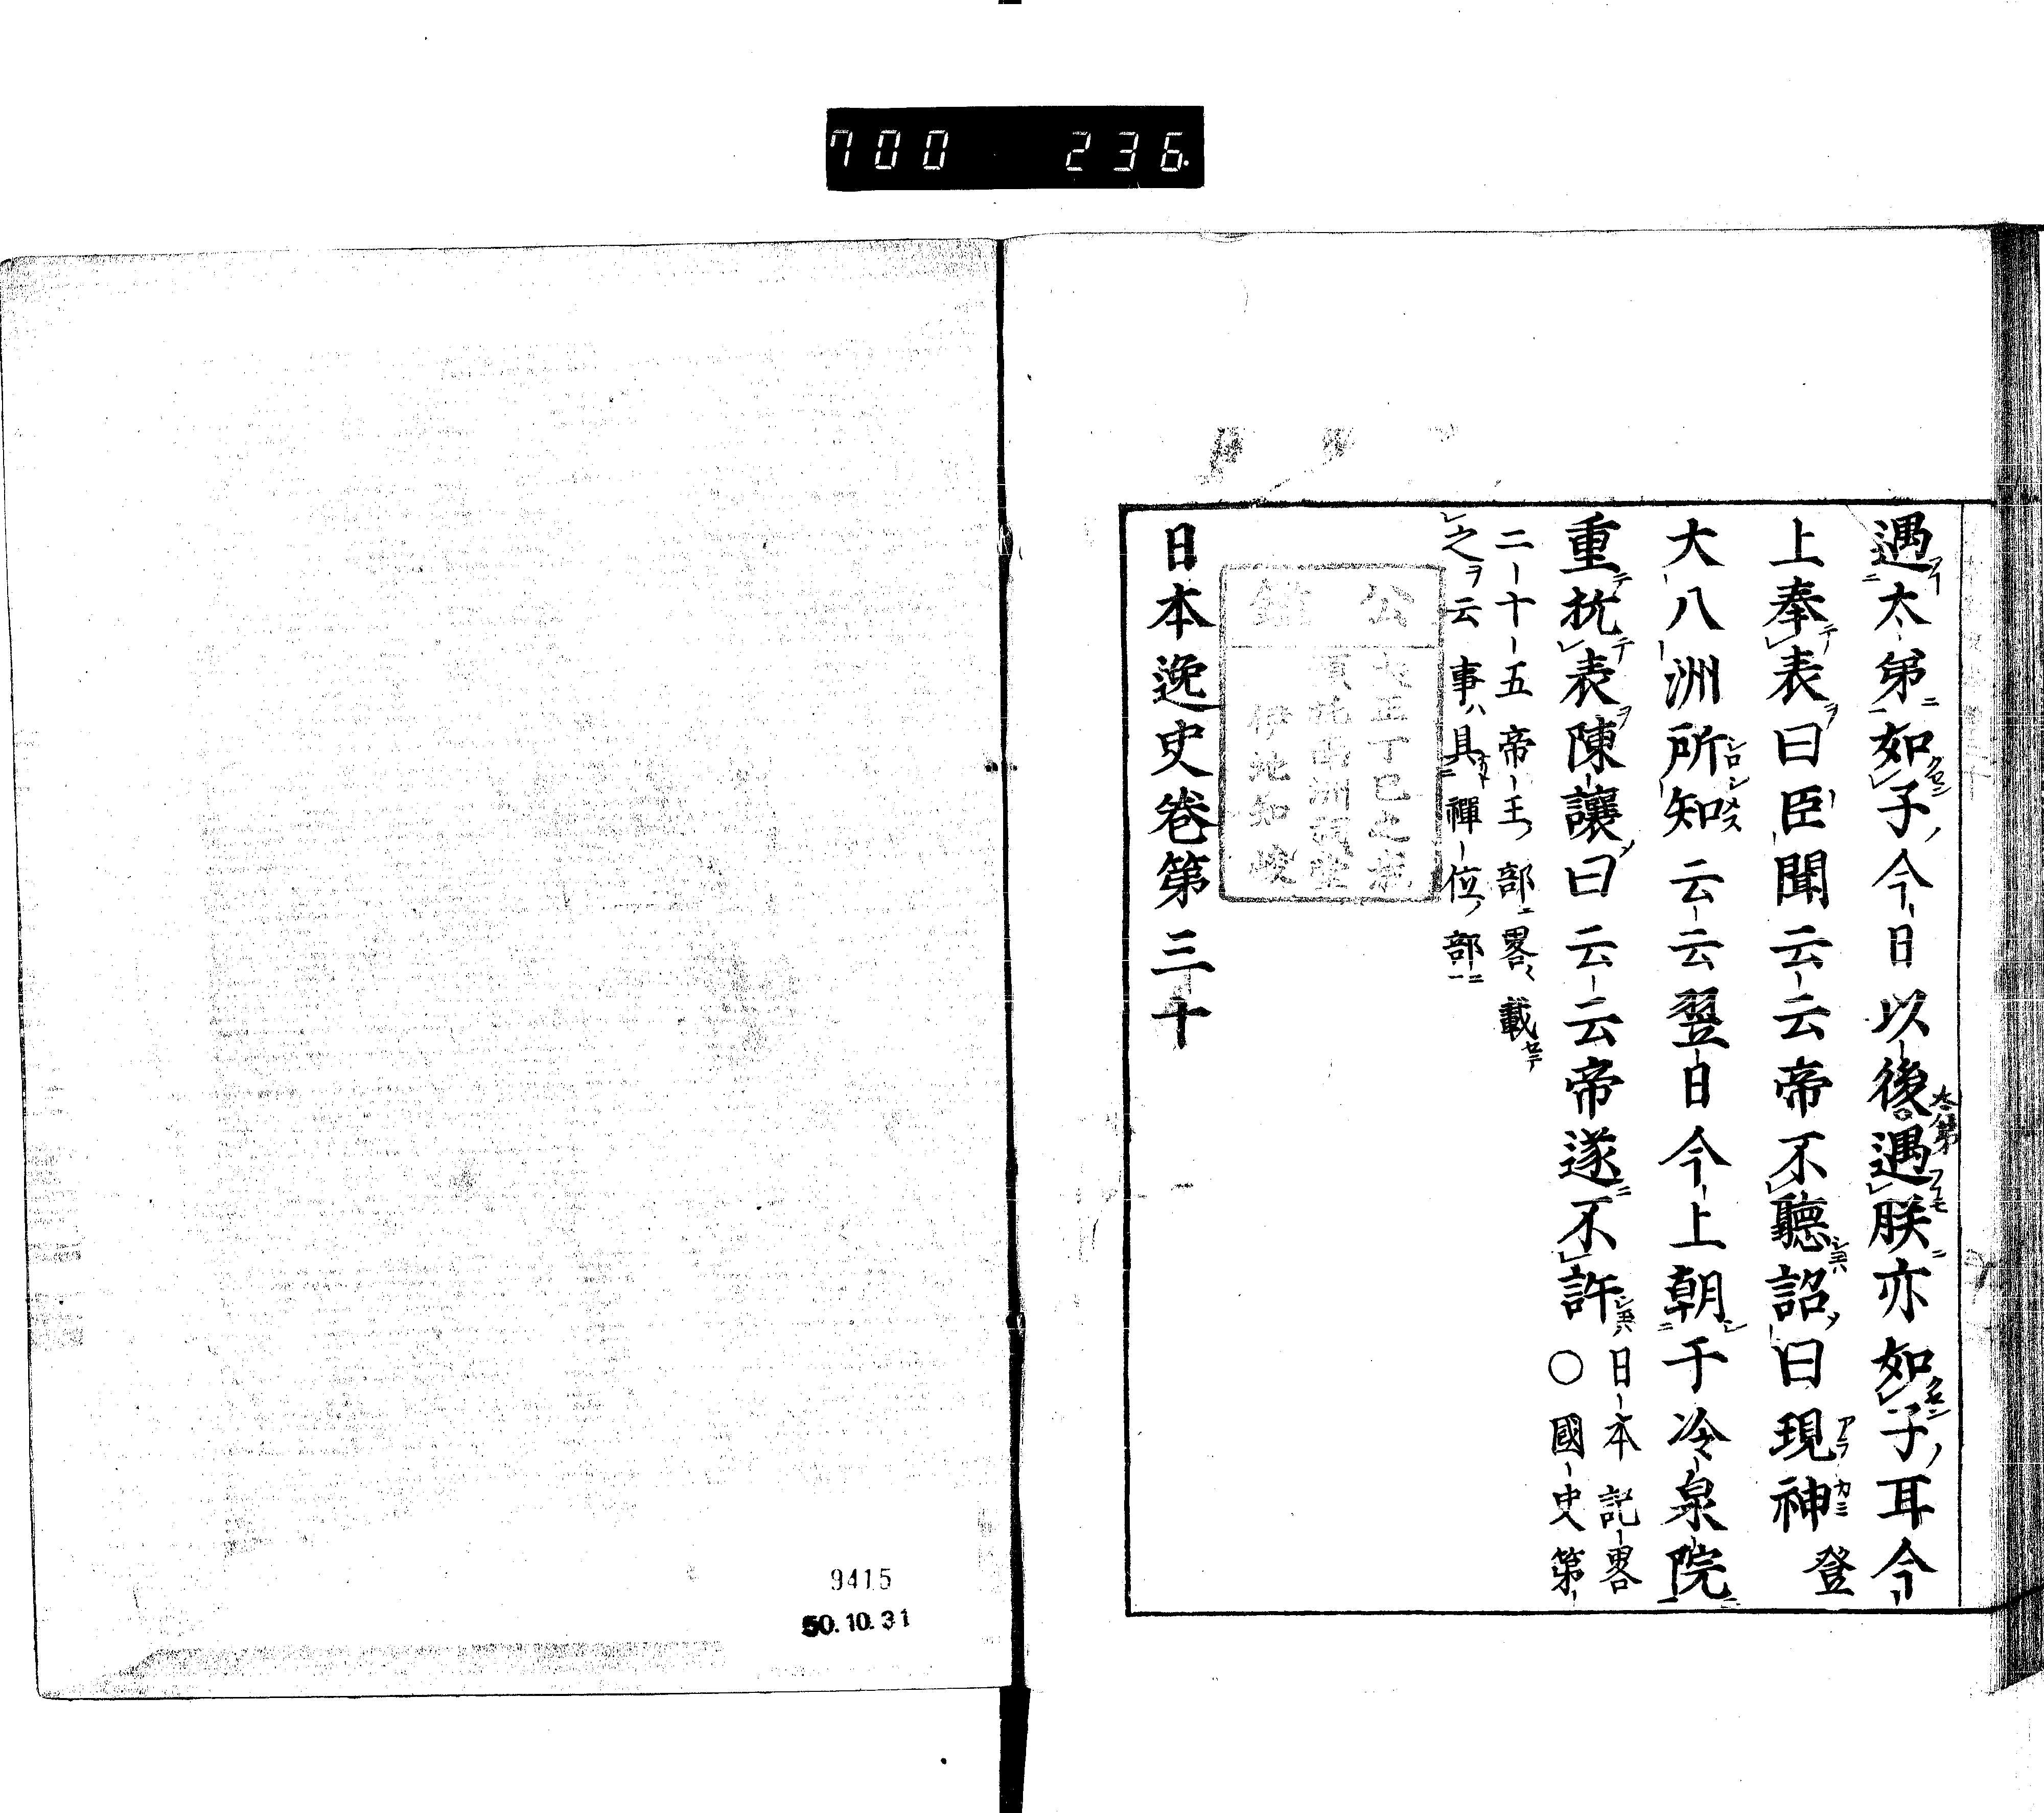 700 236
遇太弟如子今日以後太弟遇朕亦如子耳今
上奉表曰臣聞云云帝不聽詔曰現神登
大八洲所知云云翌日今上朝于冷泉院
重抗表陳讓曰云云帝遂不許日本記畧
○國史第
二十五帝王部畧載
之云事具禪位部
公
大正丁巳之
南洲祠堂
伊地知峻
日本逸史卷第三十
9415
50.10.31